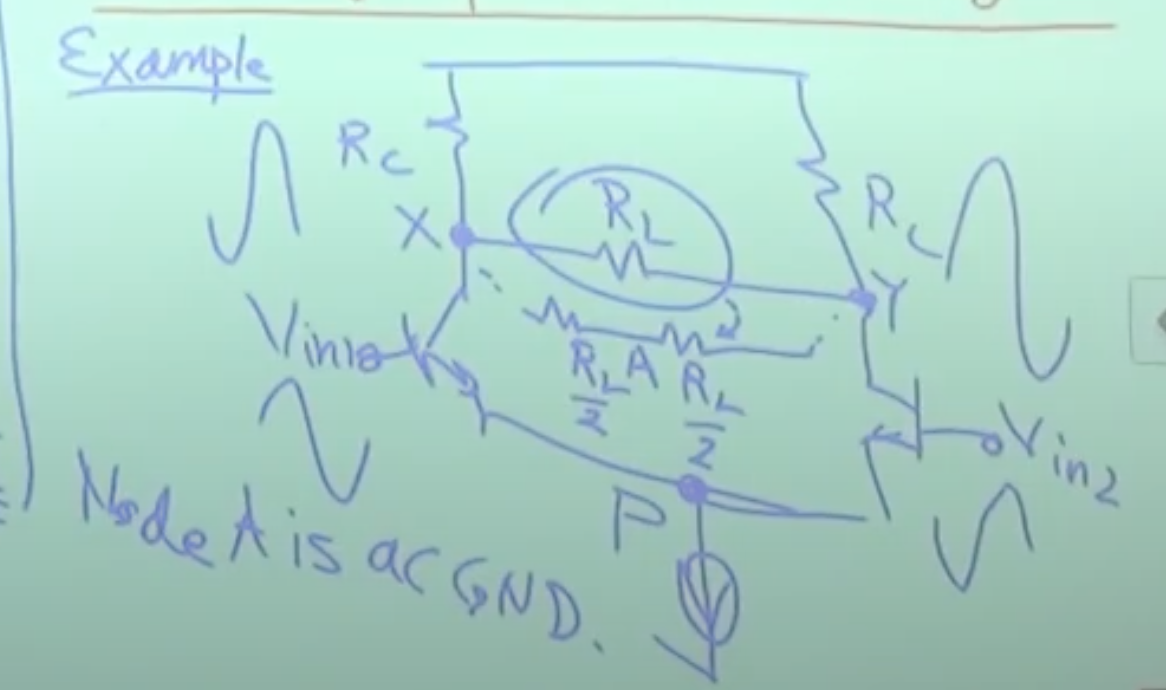 Example
R_C
R_L
R_C
X
Y
Vin1
R_L/2
A
R_L/2
Vin2
P
Node A is ac GND.